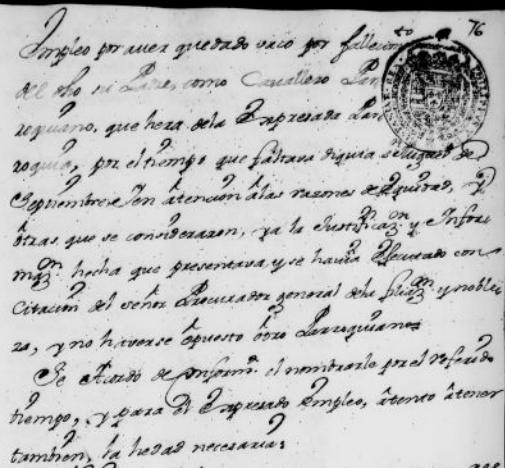 76
Empleo por aver quedado vaco por fallecim.to
del dho su Padre, como Cavallero Par
roquiano, que hera dela Expresada Par
roquia, por el tiempo que faltava
Septiembre, en atencion âlas razones de equidad, y
ôtras, que se consideraron, ya la Justificaz.on y Infor
maz.on hecha que presentava, y se havia Efecutado con
Citacion del señor Procurador general dela y noble
za, y no haverse ôpuesto ôtro Parroquiano
Se Acordó de Conform.d el nombrarle por el referido
tiempo, y para el Expresado Empleo, âtento âtener
tambien, la hedad necesaria;